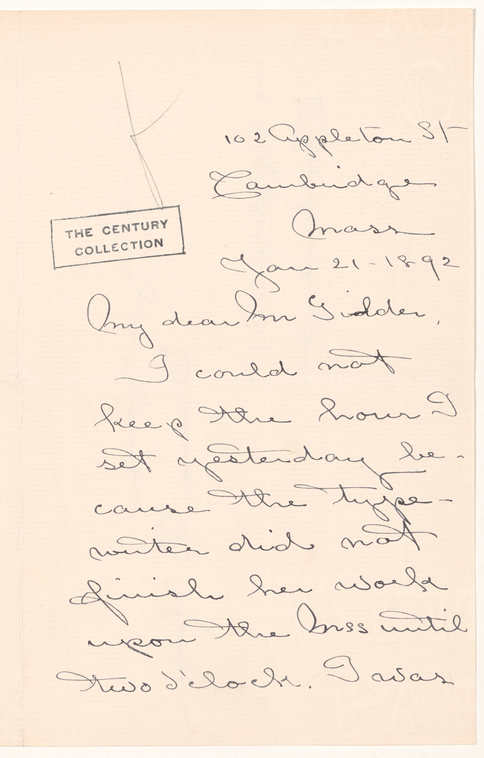 102 Appleton St
Cambridge
Mass
THE CENTURY
COLLECTION
Jan 21-1892
My dear Mr Gilder,
I could not
keep the hour I
set yesterday be-
cause the type-
writer did not
finish her work
upon the Mss until
two o'clock. I was